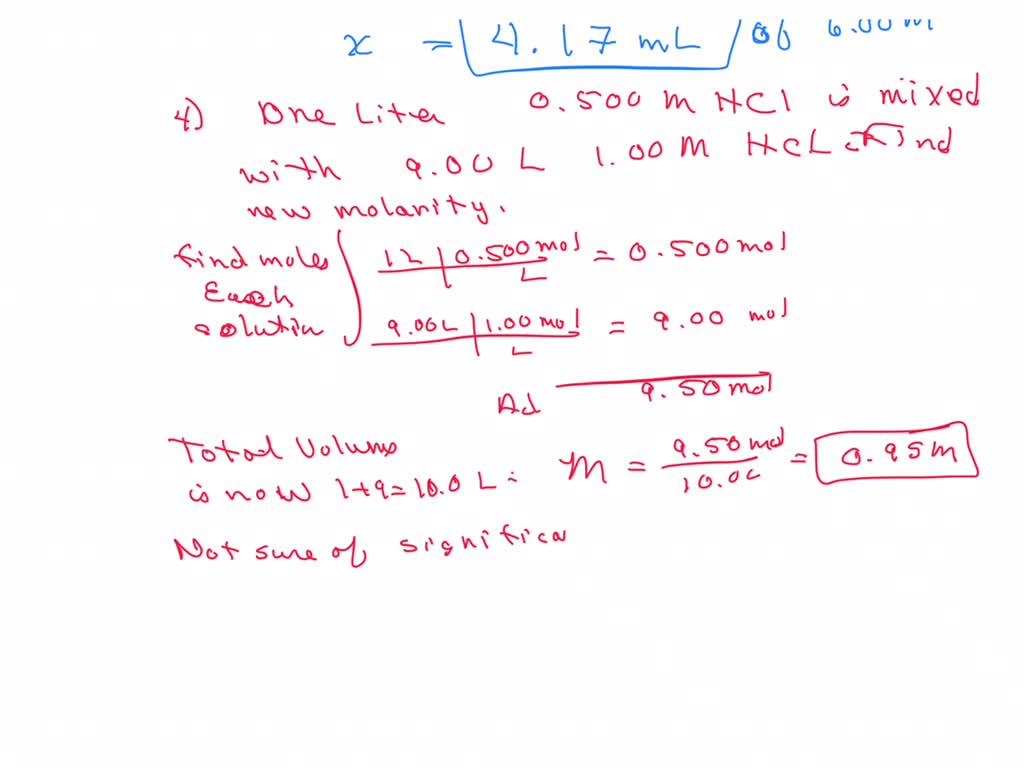 x = 4.17 mL / of 6.00 M
4) One Liter 0.500 M HCl is mixed
with 9.00 L 1.00 M HCL. Find
new molarity.
find moles
Each
solution
1L | 0.500 mol / L = 0.500 mol
9.00L | 1.00 mol / L = 9.00 mol
Ad 9.50 mol
Total Volume
is now 1+9=10.0 L:
M = 9.50 mol / 10.0L = 0.95M
Not sure of significa